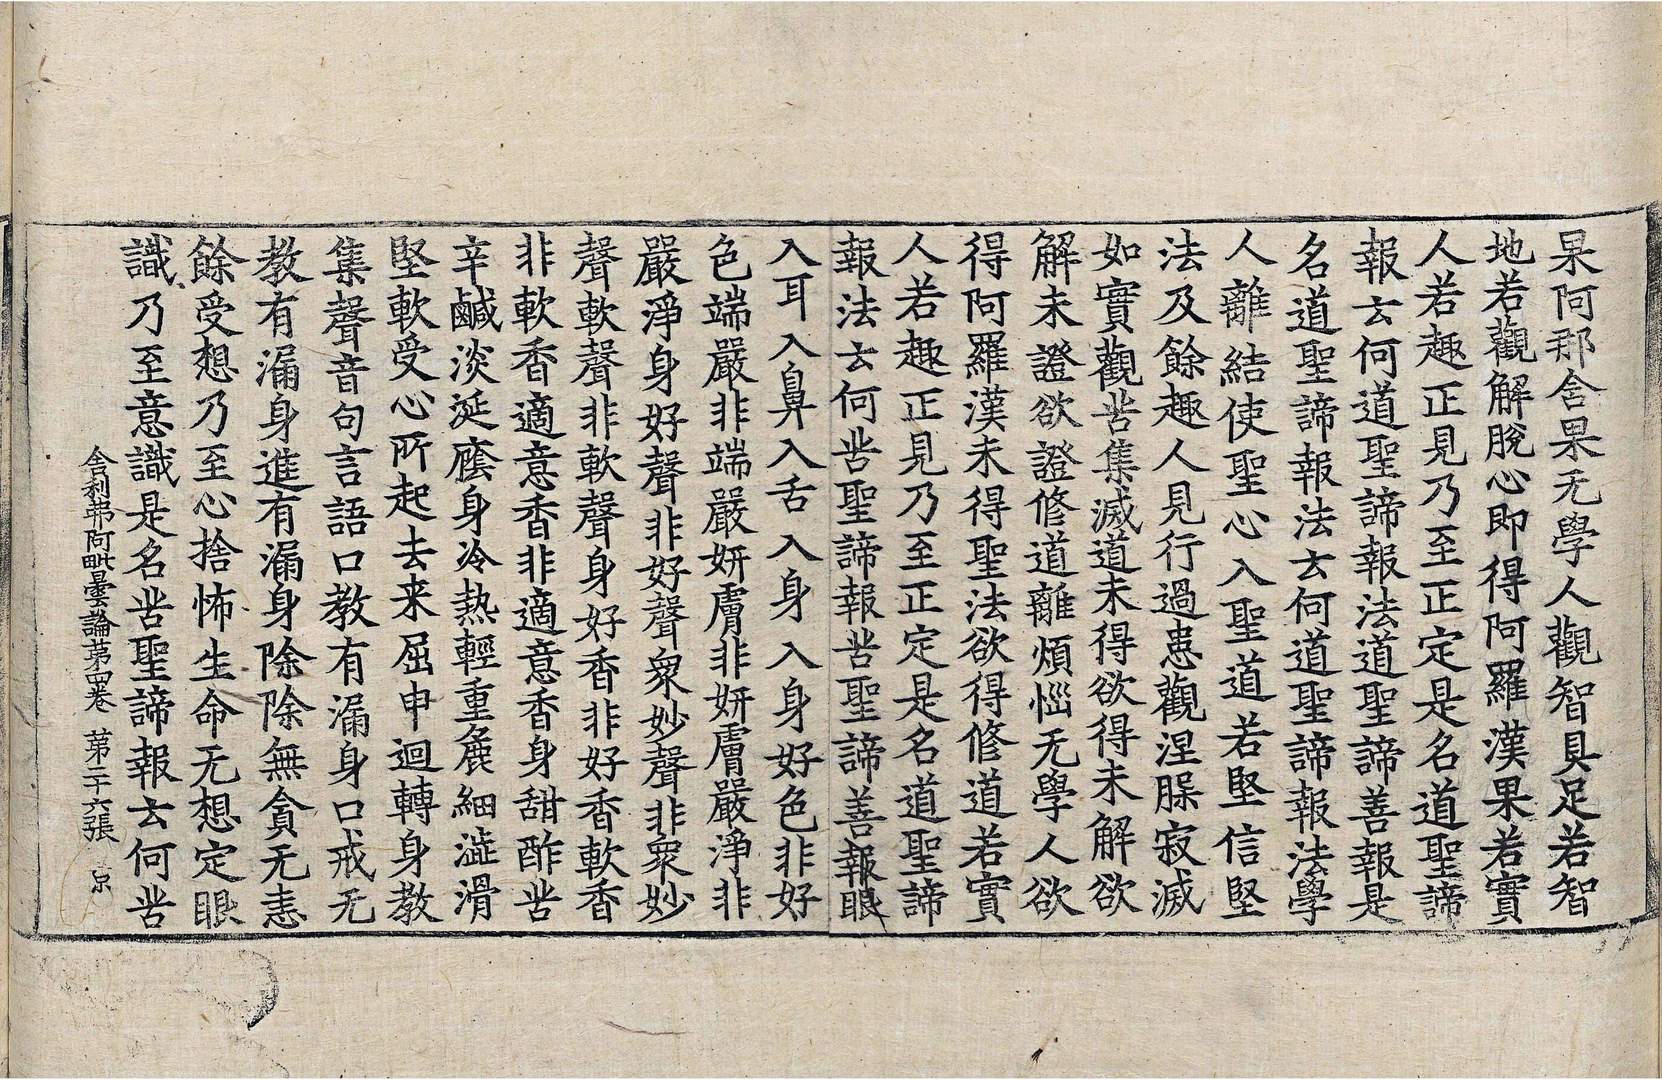 果阿那舍果无學人觀智具足若智
地若觀解脫心即得阿羅漢果若實
人若趣正見乃至正定是名道聖諦
報云何道聖諦報法道聖諦善報是
名道聖諦報法云何道聖諦報法學
人離結使聖心入聖道若堅信堅
法及餘趣人見行過患觀涅槃寂滅
如實觀苦集滅道未得欲得未解欲
解未證欲證修道離煩惱无學人欲
得阿羅漢未得聖法欲得修道若實
人若趣正見乃至正定是名道聖諦
報法云何苦聖諦報苦聖諦善報眼
入耳入鼻入舌入身入身好色非好
色端嚴非端嚴妍膚非妍膚嚴淨非
嚴淨身好聲非好聲衆妙聲非衆妙
聲軟聲非軟聲身好香非好香軟香
非軟香適意香非適意香身甜酢苦
辛鹹淡涎癊身冷熱輕重麁細澁滑
堅軟受心所起去来屈申迴轉身教
集聲音句言語口教有漏身口戒无
教有漏身進有漏身除除無貪无恚
餘受想乃至心捨怖生命无想定眼
識乃至意識是名苦聖諦報云何苦
舍利弗阿毗曇論第四卷 第二十六張 京